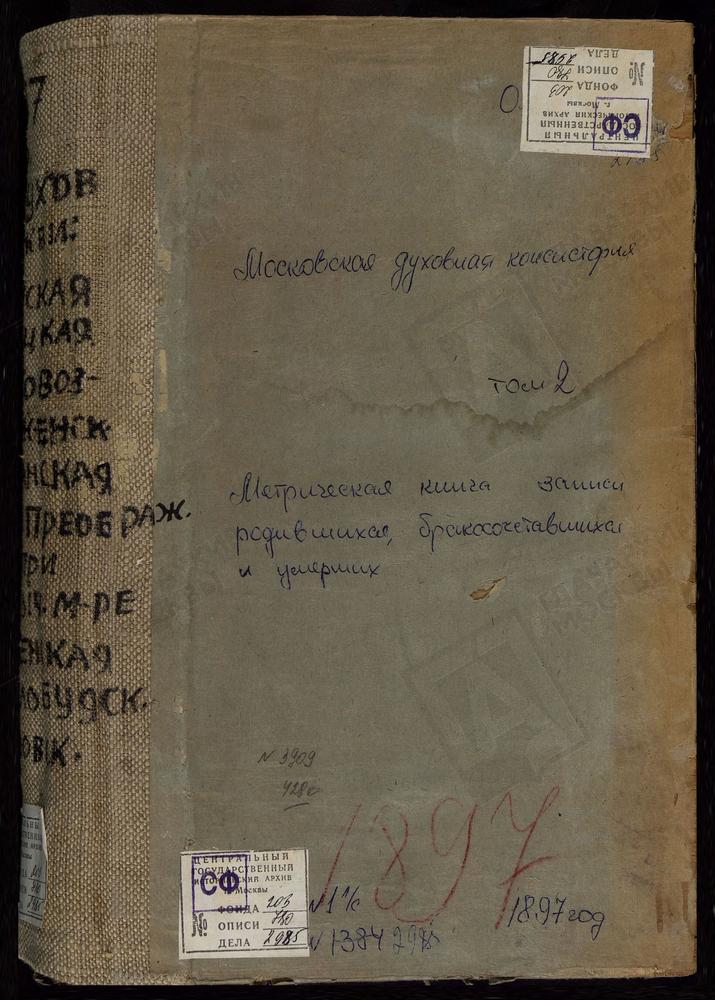 7
УХОВ
СКАЯ
ЦКАЯ
ОВОЗ-
ЖЕНСК
НСКАЯ
ПРЕОБРАЖ.
ТРИ
М-РЕ
ЕНКАЯ
ЛОБУДСК.
ОВСК.
№
ДЕЛА 2985
ОПИСИ 780
ФОНДА 203
г. Москвы
ИСТОРИЧЕСКИЙ АРХИВ
ГОСУДАРСТВЕННЫЙ
ЦЕНТРАЛЬНЫЙ
СФ
О
Московская духовная консистория
том 2
Метрическая книга записи
родившихся, бракосочетавшихся
и умерших
N 3909
428
1897
ЦЕНТРАЛЬНЫЙ
ГОСУДАРСТВЕННЫЙ
ИСТОРИЧЕСКИЙ АРХИВ
г. Москвы
СФ
№
ФОНДА 203
ОПИСИ 780
ДЕЛА 2985
1897 год
N 1384 2985